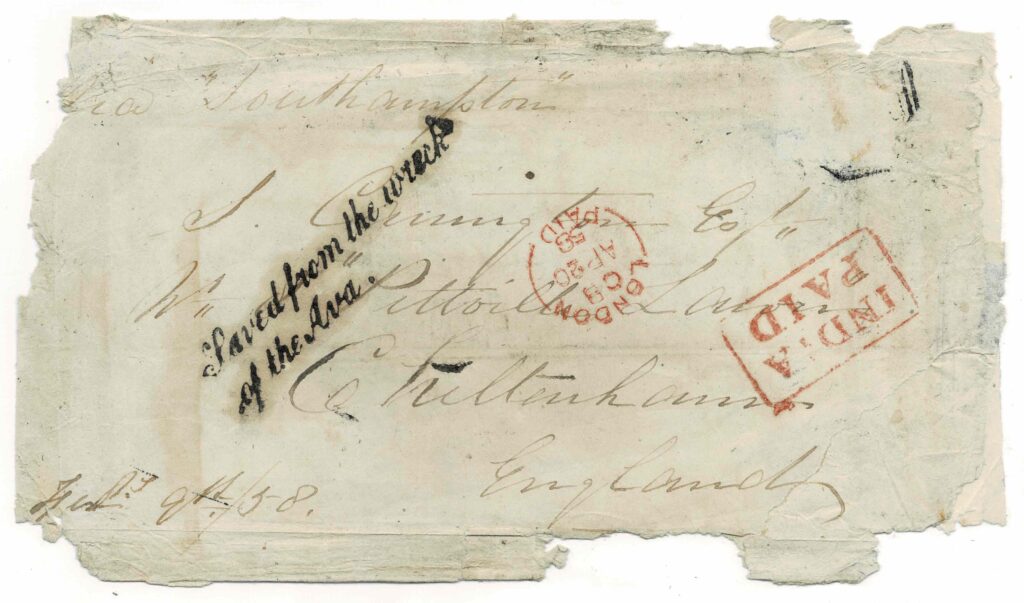 via "Southampton"
Saved from the wreck
of the Ava.
Esqr
Pittville Lawn
Cheltenham
England
Feb. 9th/58.
LONDON
C8
AP 20
58
PAID
INDIA
PAID